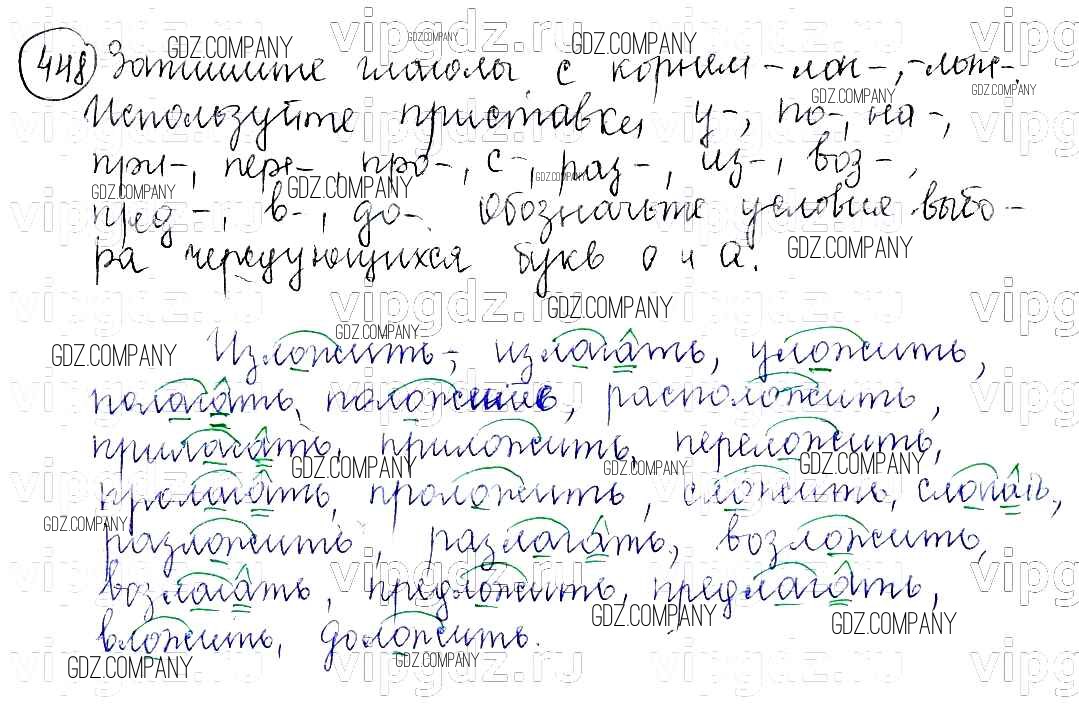 448 Запишите глаголы с корнем -лаг-, -лож-.
Используйте приставки у-, по-, на-,
при-, пере-, про-, с-, раз-, из-, воз-,
пред-, в-, до-. Обозначьте условия выбо-
ра чередующихся букв о и а.
Изложить, излагать, уложить,
полагать, положение, расположить,
прилагать, приложить, переложить,
пролагать, проложить, сложить, слагать,
разложить, разлагать, возложить,
возлагать, предложить, предлагать,
вложить, доложить.
GDZ.COMPANY
vipgdz.ru